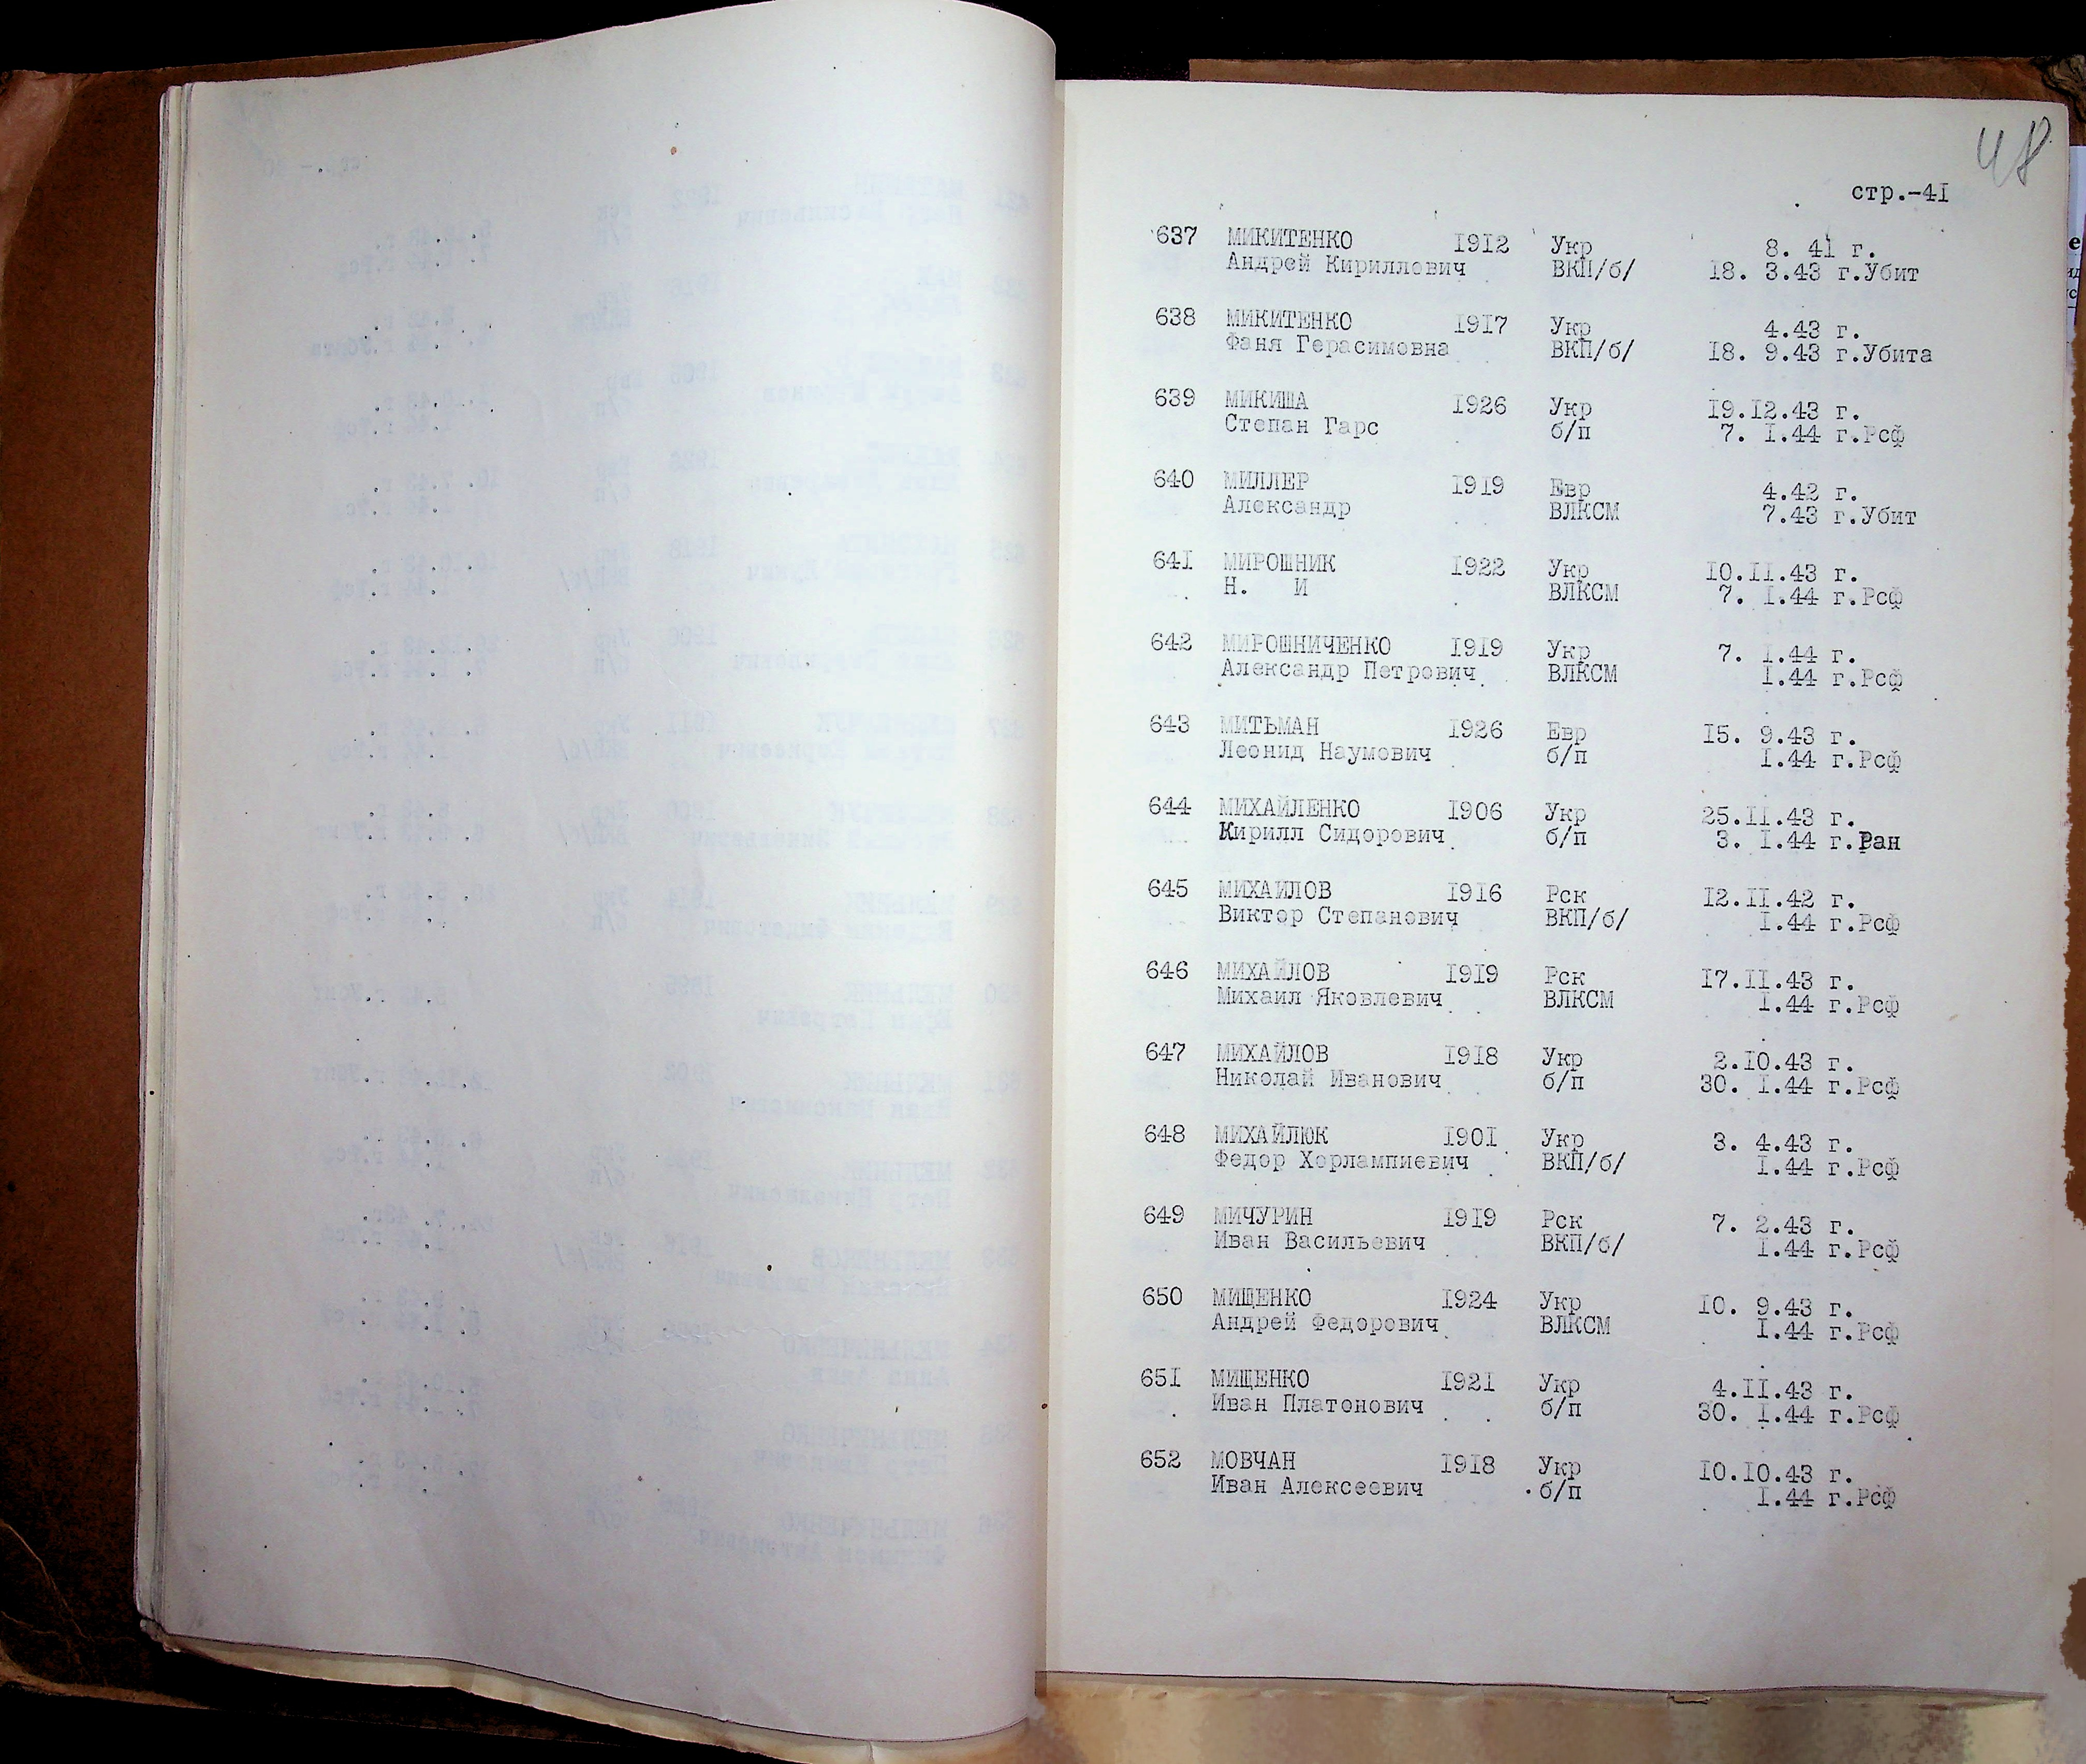 48
стр.-41
637 МИКИТЕНКО 1912 Укр 8. 41 г.
Андрей Кириллович ВКП/б/ 18. 3.43 г.Убит
638 МИКИТЕНКО 1917 Укр 4.43 г.
Фаня Герасимовна ВКП/б/ 18. 9.43 г.Убита
639 МИКИША 1926 Укр 19.12.43 г.
Степан Гарс б/п 7. 1.44 г.Рсф
640 МИЛЛЕР 1919 Евр 4.42 г.
Александр ВЛКСМ 7.43 г.Убит
641 МИРОШНИК 1922 Укр 10.11.43 г.
Н. И ВЛКСМ 7. 1.44 г.Рсф
642 МИРОШНИЧЕНКО 1919 Укр 7. 1.44 г.
Александр Петрович ВЛКСМ 1.44 г.Рсф
643 МИТЬМАН 1926 Евр 15. 9.43 г.
Леонид Наумович б/п 1.44 г.Рсф
644 МИХАЙЛЕНКО 1906 Укр 25.11.43 г.
Кирилл Сидорович б/п 3. 1.44 г.Ран
645 МИХАЙЛОВ 1916 Рск 12.11.42 г.
Виктор Степанович ВКП/б/ 1.44 г.Рсф
646 МИХАЙЛОВ 1919 Рск 17.11.43 г.
Михаил Яковлевич ВЛКСМ 1.44 г.Рсф
647 МИХАЙЛОВ 1918 Укр 2.10.43 г.
Николай Иванович б/п 30. 1.44 г.Рсф
648 МИХАЙЛЮК 1901 Укр 3. 4.43 г.
Федор Хорлампиевич ВКП/б/ 1.44 г.Рсф
649 МИЧУРИН 1919 Рск 7. 2.43 г.
Иван Васильевич ВКП/б/ 1.44 г.Рсф
650 МИЩЕНКО 1924 Укр 10. 9.43 г.
Андрей Федорович ВЛКСМ 1.44 г.Рсф
651 МИЩЕНКО 1921 Укр 4.11.43 г.
Иван Платонович б/п 30. 1.44 г.Рсф
652 МОВЧАН 1918 Укр 10.10.43 г.
Иван Алексеевич б/п 1.44 г.Рсф